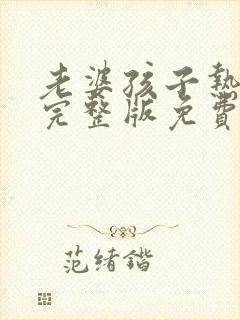 老婆孩子熱
完整版免費
范绪鍇